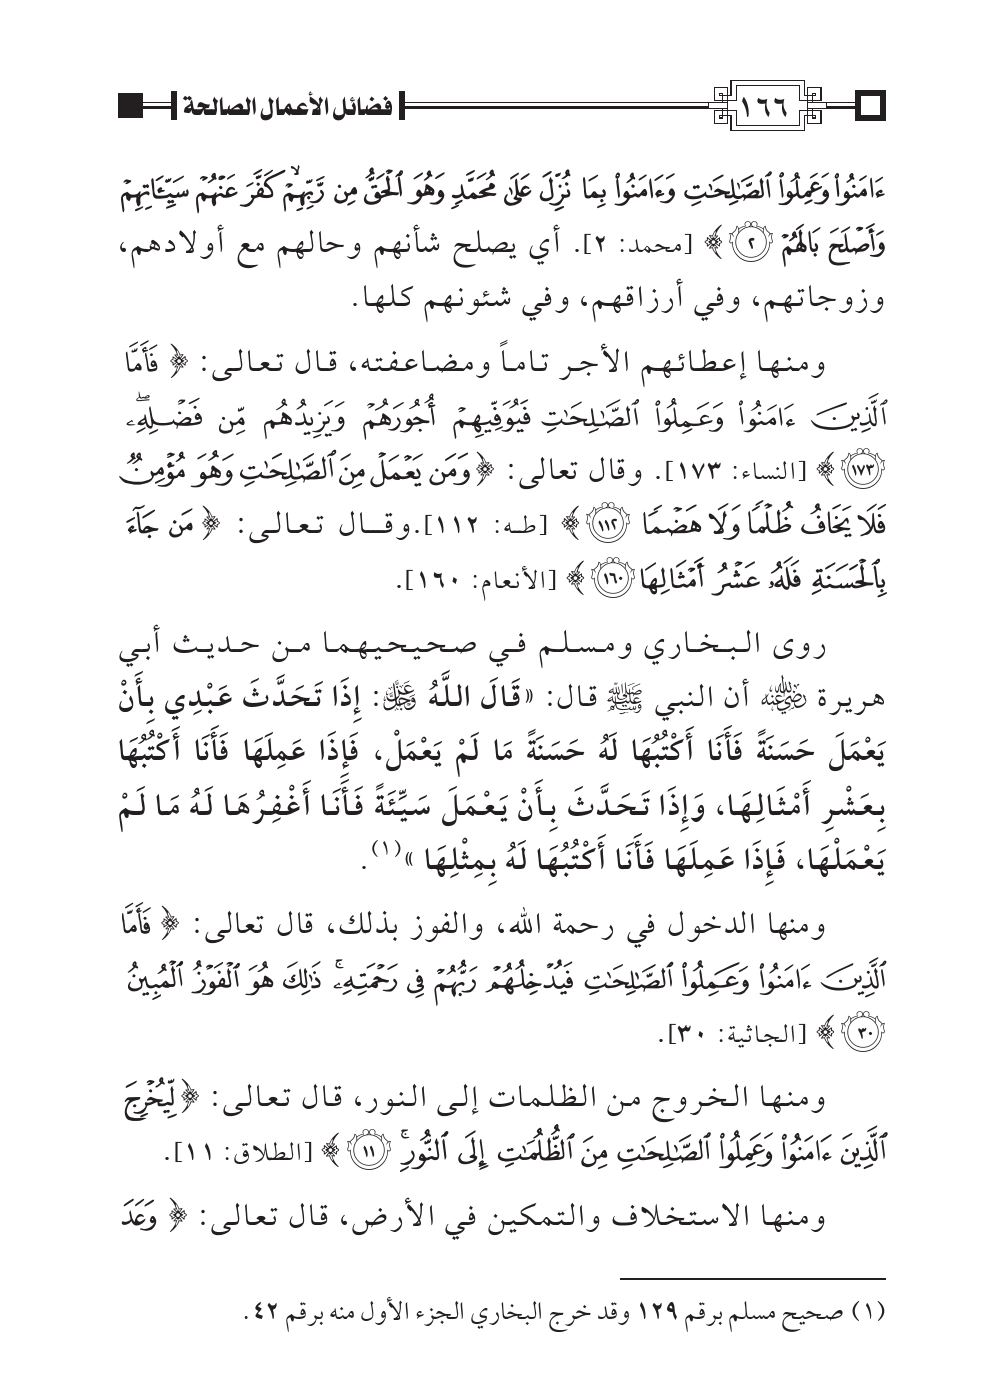 ١٦٦ فضائل الأعمال الصالحة
ءَامَنُوا۟ وَعَمِلُوا۟ ٱلصَّـٰلِحَـٰتِ وَءَامَنُوا۟ بِمَا نُزِّلَ عَلَىٰ مُحَمَّدٍ وَهُوَ ٱلْحَقُّ مِن رَّبِّهِمْ ۙ كَفَّرَ عَنْهُمْ سَيِّـَٔاتِهِمْ
وَأَصْلَحَ بَالَهُمْ ٢ ﴾ [محمد: ٢]. أي يصلح شأنهم وحالهم مع أولادهم،
وزوجاتهم، وفي أرزاقهم، وفي شئونهم كلها.
ومنها إعطائهم الأجر تاماً ومضاعفته، قال تعالى: ﴿ فَأَمَّا
ٱلَّذِينَ ءَامَنُوا۟ وَعَمِلُوا۟ ٱلصَّـٰلِحَـٰتِ فَيُوَفِّيهِمْ أُجُورَهُمْ وَيَزِيدُهُم مِّن فَضْلِهِۦ ۖ
١٧٣ ﴾ [النساء: ١٧٣]. وقال تعالى: ﴿ وَمَن يَعْمَلْ مِنَ ٱلصَّـٰلِحَـٰتِ وَهُوَ مُؤْمِنٌ
فَلَا يَخَافُ ظُلْمًا وَلَا هَضْمًا ١١٢ ﴾ [طه: ١١٢].وقال تعالى: ﴿ مَن جَآءَ
بِٱلْحَسَنَةِ فَلَهُۥ عَشْرُ أَمْثَالِهَا ١٦٠ ﴾ [الأنعام: ١٦٠].
روى البخاري ومسلم في صحيحيهما من حديث أبي
هريرة ﵁ أن النبي ﷺ قال: «قَالَ اللَّهُ ﷿: إِذَا تَحَدَّثَ عَبْدِي بِأَنْ
يَعْمَلَ حَسَنَةً فَأَنَا أَكْتُبُهَا لَهُ حَسَنَةً مَا لَمْ يَعْمَلْ، فَإِذَا عَمِلَهَا فَأَنَا أَكْتُبُهَا
بِعَشْرِ أَمْثَالِهَا، وَإِذَا تَحَدَّثَ بِأَنْ يَعْمَلَ سَيِّئَةً فَأَنَا أَغْفِرُهَا لَهُ مَا لَمْ
يَعْمَلْهَا، فَإِذَا عَمِلَهَا فَأَنَا أَكْتُبُهَا لَهُ بِمِثْلِهَا »(١).
ومنها الدخول في رحمة الله، والفوز بذلك، قال تعالى: ﴿ فَأَمَّا
ٱلَّذِينَ ءَامَنُوا۟ وَعَمِلُوا۟ ٱلصَّـٰلِحَـٰتِ فَيُدْخِلُهُمْ رَبُّهُمْ فِى رَحْمَتِهِۦ ۚ ذَٰلِكَ هُوَ ٱلْفَوْزُ ٱلْمُبِينُ
٣٠ ﴾ [الجاثية: ٣٠].
ومنها الخروج من الظلمات إلى النور، قال تعالى: ﴿ لِّيُخْرِجَ
ٱلَّذِينَ ءَامَنُوا۟ وَعَمِلُوا۟ ٱلصَّـٰلِحَـٰتِ مِنَ ٱلظُّلُمَـٰتِ إِلَى ٱلنُّورِ ۚ ١١ ﴾ [الطلاق: ١١].
ومنها الاستخلاف والتمكين في الأرض، قال تعالى: ﴿ وَعَدَ
(١) صحيح مسلم برقم ١٢٩ وقد خرج البخاري الجزء الأول منه برقم ٤٢.